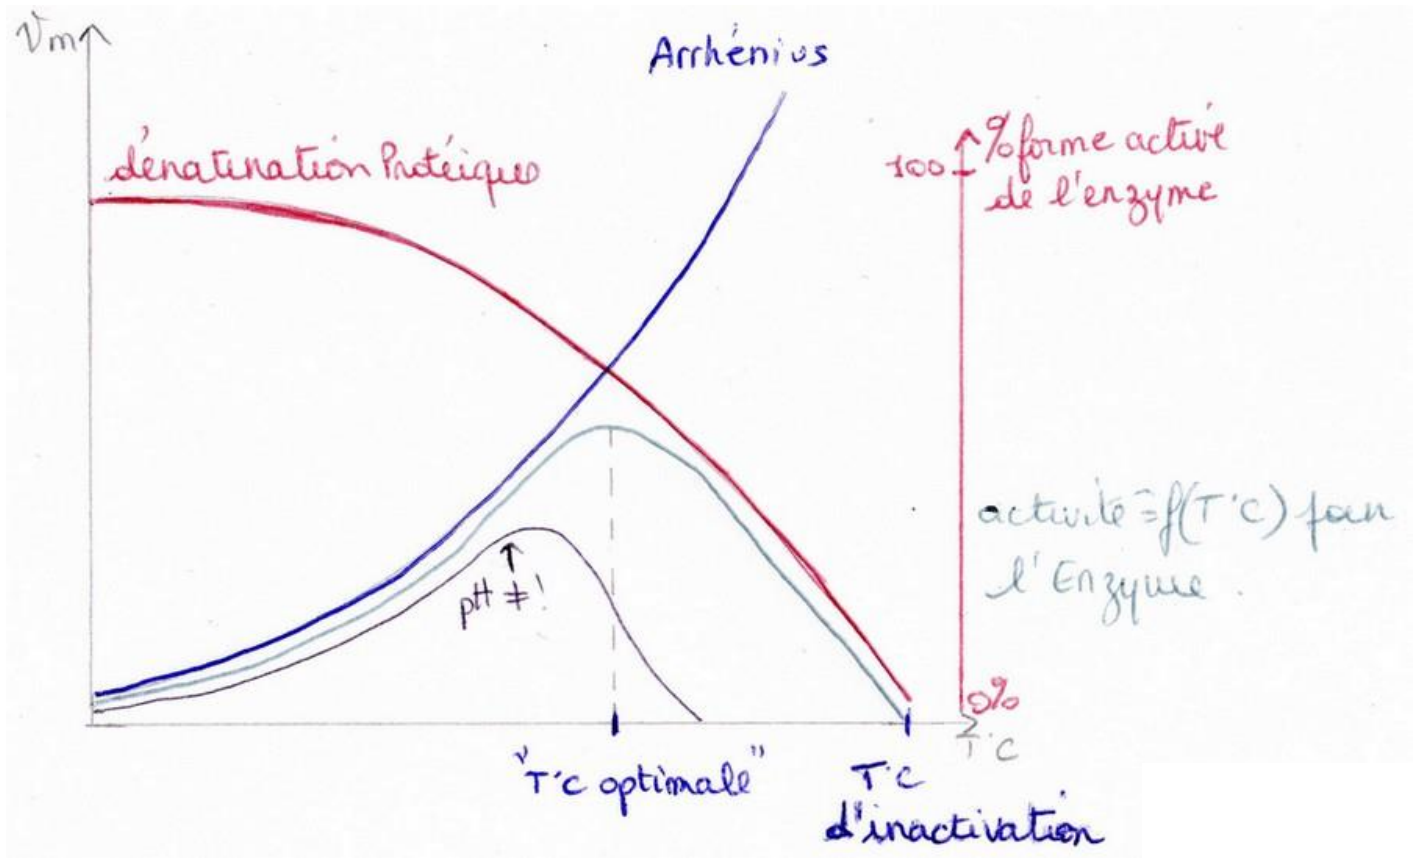 Vm
Arrhénius
dénaturation Protéique
100
% forme active
de l'enzyme
activité = f(T°C) pour
l'Enzyme.
pH ≠ !
0%
T°C
"T°C optimale"
T°C
d'inactivation